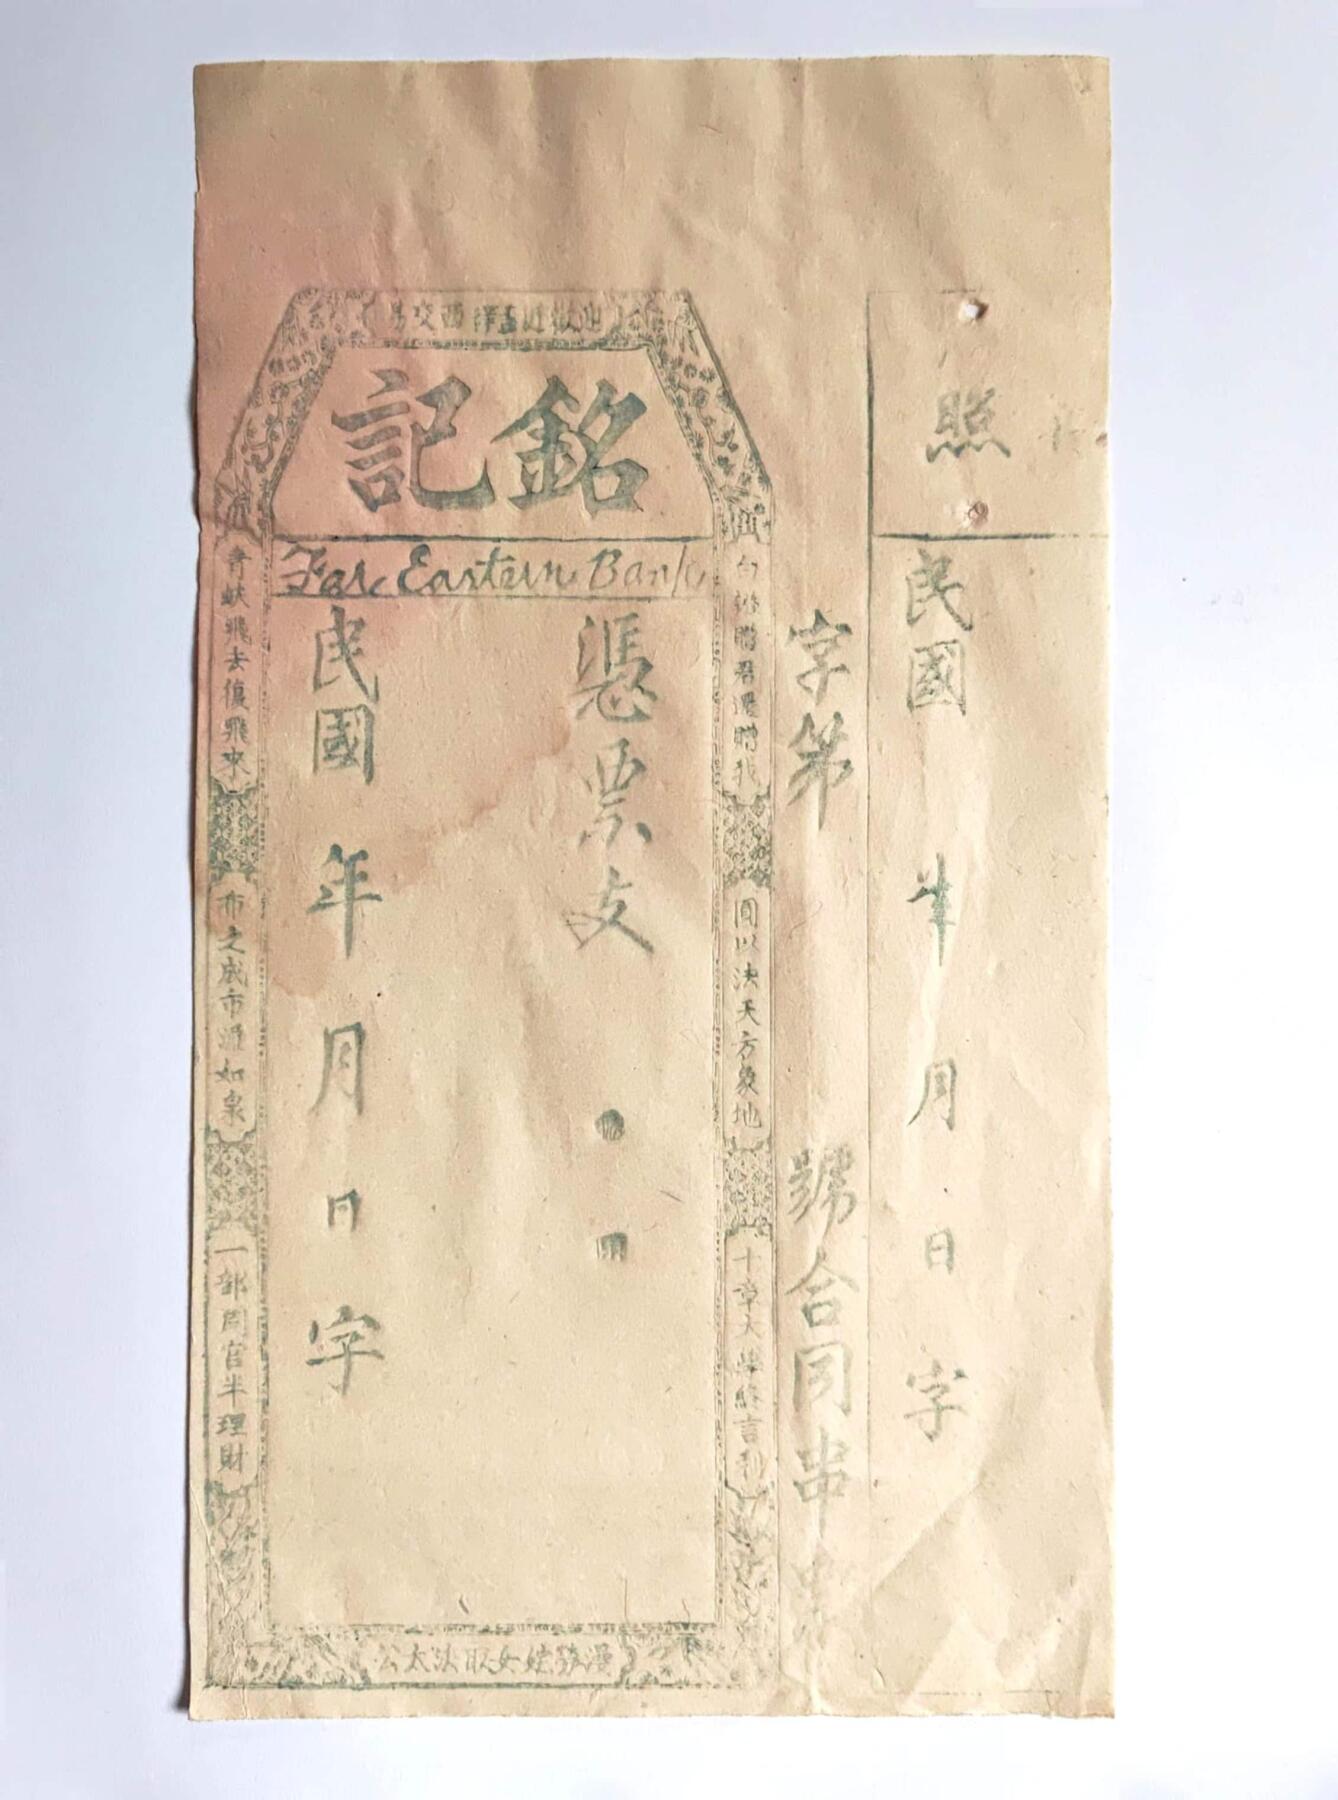 照
民國 年 月 日 字
字第 號合同串
銘記
Far Eastern Bank
憑票支
民國 年 月 日 字
贈君還贈我
圓以法天方象地
十章大學終言利
青蚨飛去復飛來
布之成市通如泉
一部周官半理財
女取法太公